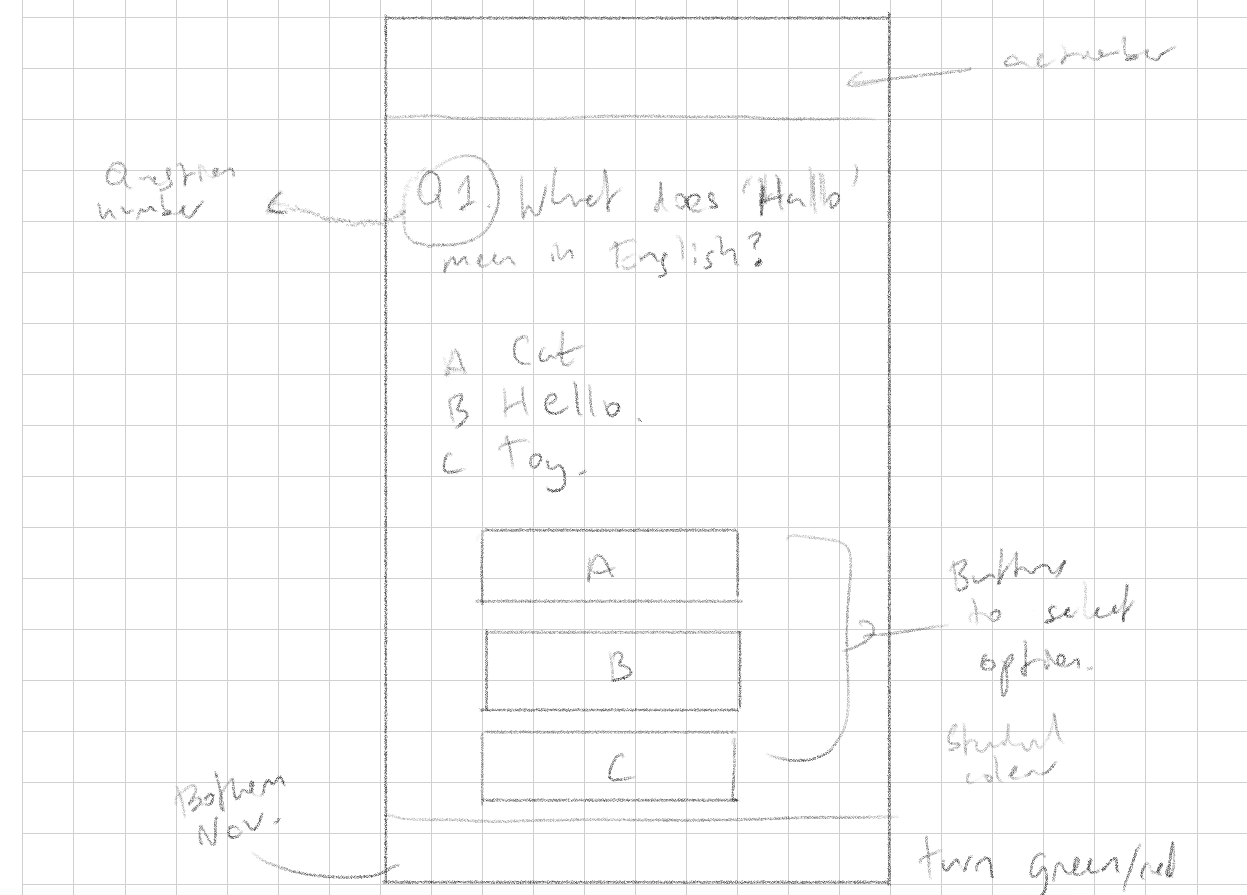 action bar
Question
number
Q1. What does 'Hallo'
mean in English?
A Cat
B Hello.
C Toy.
A
B
C
Buttons
to select
option.
Standard
colour
Bottom
Nav.
turn green/red